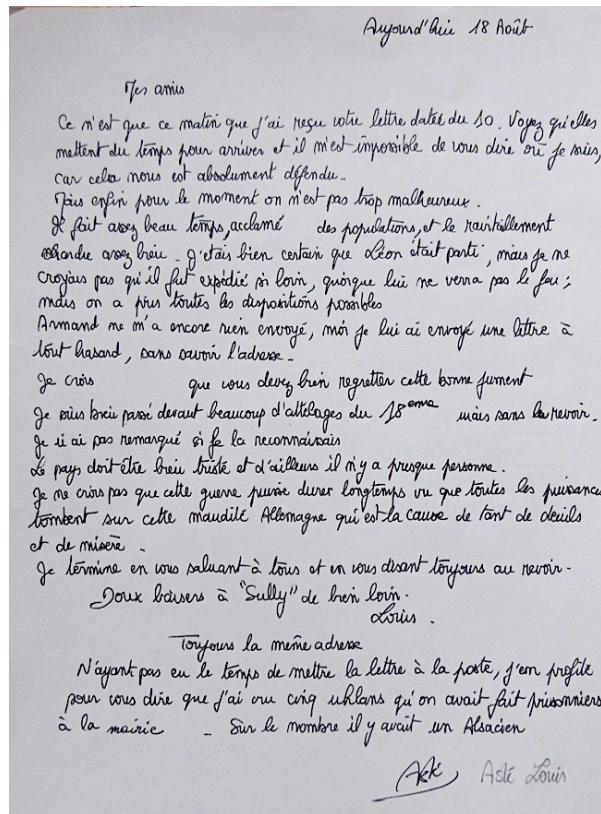 Aujourd'hui 18 Août
Mes amis
Ce n'est que ce matin que j'ai reçu votre lettre datée du 10. Voyez qu'elles
mettent du temps pour arriver et il m'est impossible de vous dire où je suis,
car cela nous est absolument défendu.
Mais enfin pour le moment on n'est pas trop malheureux.
Il fait assez beau temps, acclamé des populations, et le ravitaillement
marche assez bien. J'étais bien certain que Léon était parti, mais je ne
croyais pas qu'il fut expédié si loin, quoique lui ne verra pas le feu ;
mais on a pris toutes les dispositions possibles
Armand ne m'a encore rien envoyé, moi je lui ai envoyé une lettre à
tout hasard, sans savoir l'adresse.
Je crois que vous devez bien regretter cette bonne jument
Je suis bien passé devant beaucoup d'attelages du 18ème mais sans la revoir.
Je ai pas remarqué si je la reconnaissais
Le pays doit être bien triste et d'ailleurs il n'y a presque personne.
Je ne crois pas que cette guerre puisse durer longtemps vu que toutes les puissances
tombent sur cette maudite Allemagne qui est la cause de tant de deuils
et de misère.
Je termine en vous saluant à tous et en vous disant toujours au revoir.
Doux baisers à "Sully" de bien loin.
Louis.
Toujours la même adresse
N'ayant pas eu le temps de mettre la lettre à la poste, j'en profite
pour vous dire que j'ai vu cinq uhlans qu'on avait fait prisonniers
à la mairie - Sur le nombre il y avait un Alsacien
Asté Asté Louis